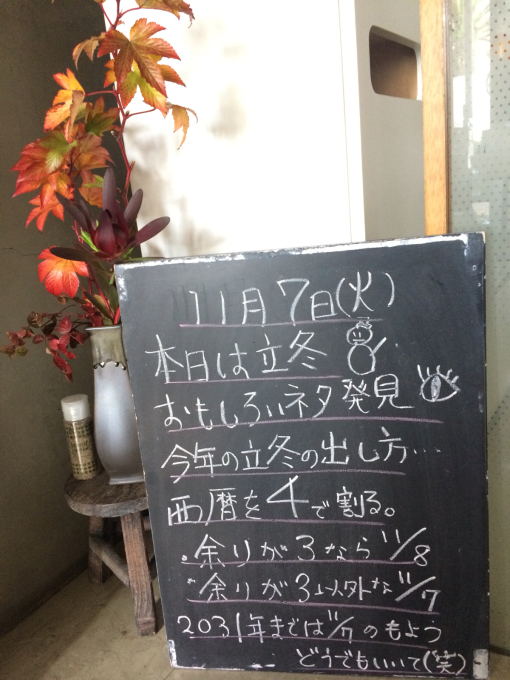 11月7日(火)
本日は立冬
おもしろいネタ発見
今年の立冬の出し方…
西暦を4で割る。
・余りが3なら11/8
・余りが3以外な11/7
2031年までは11/7のもよう
どうでもいいて(笑)